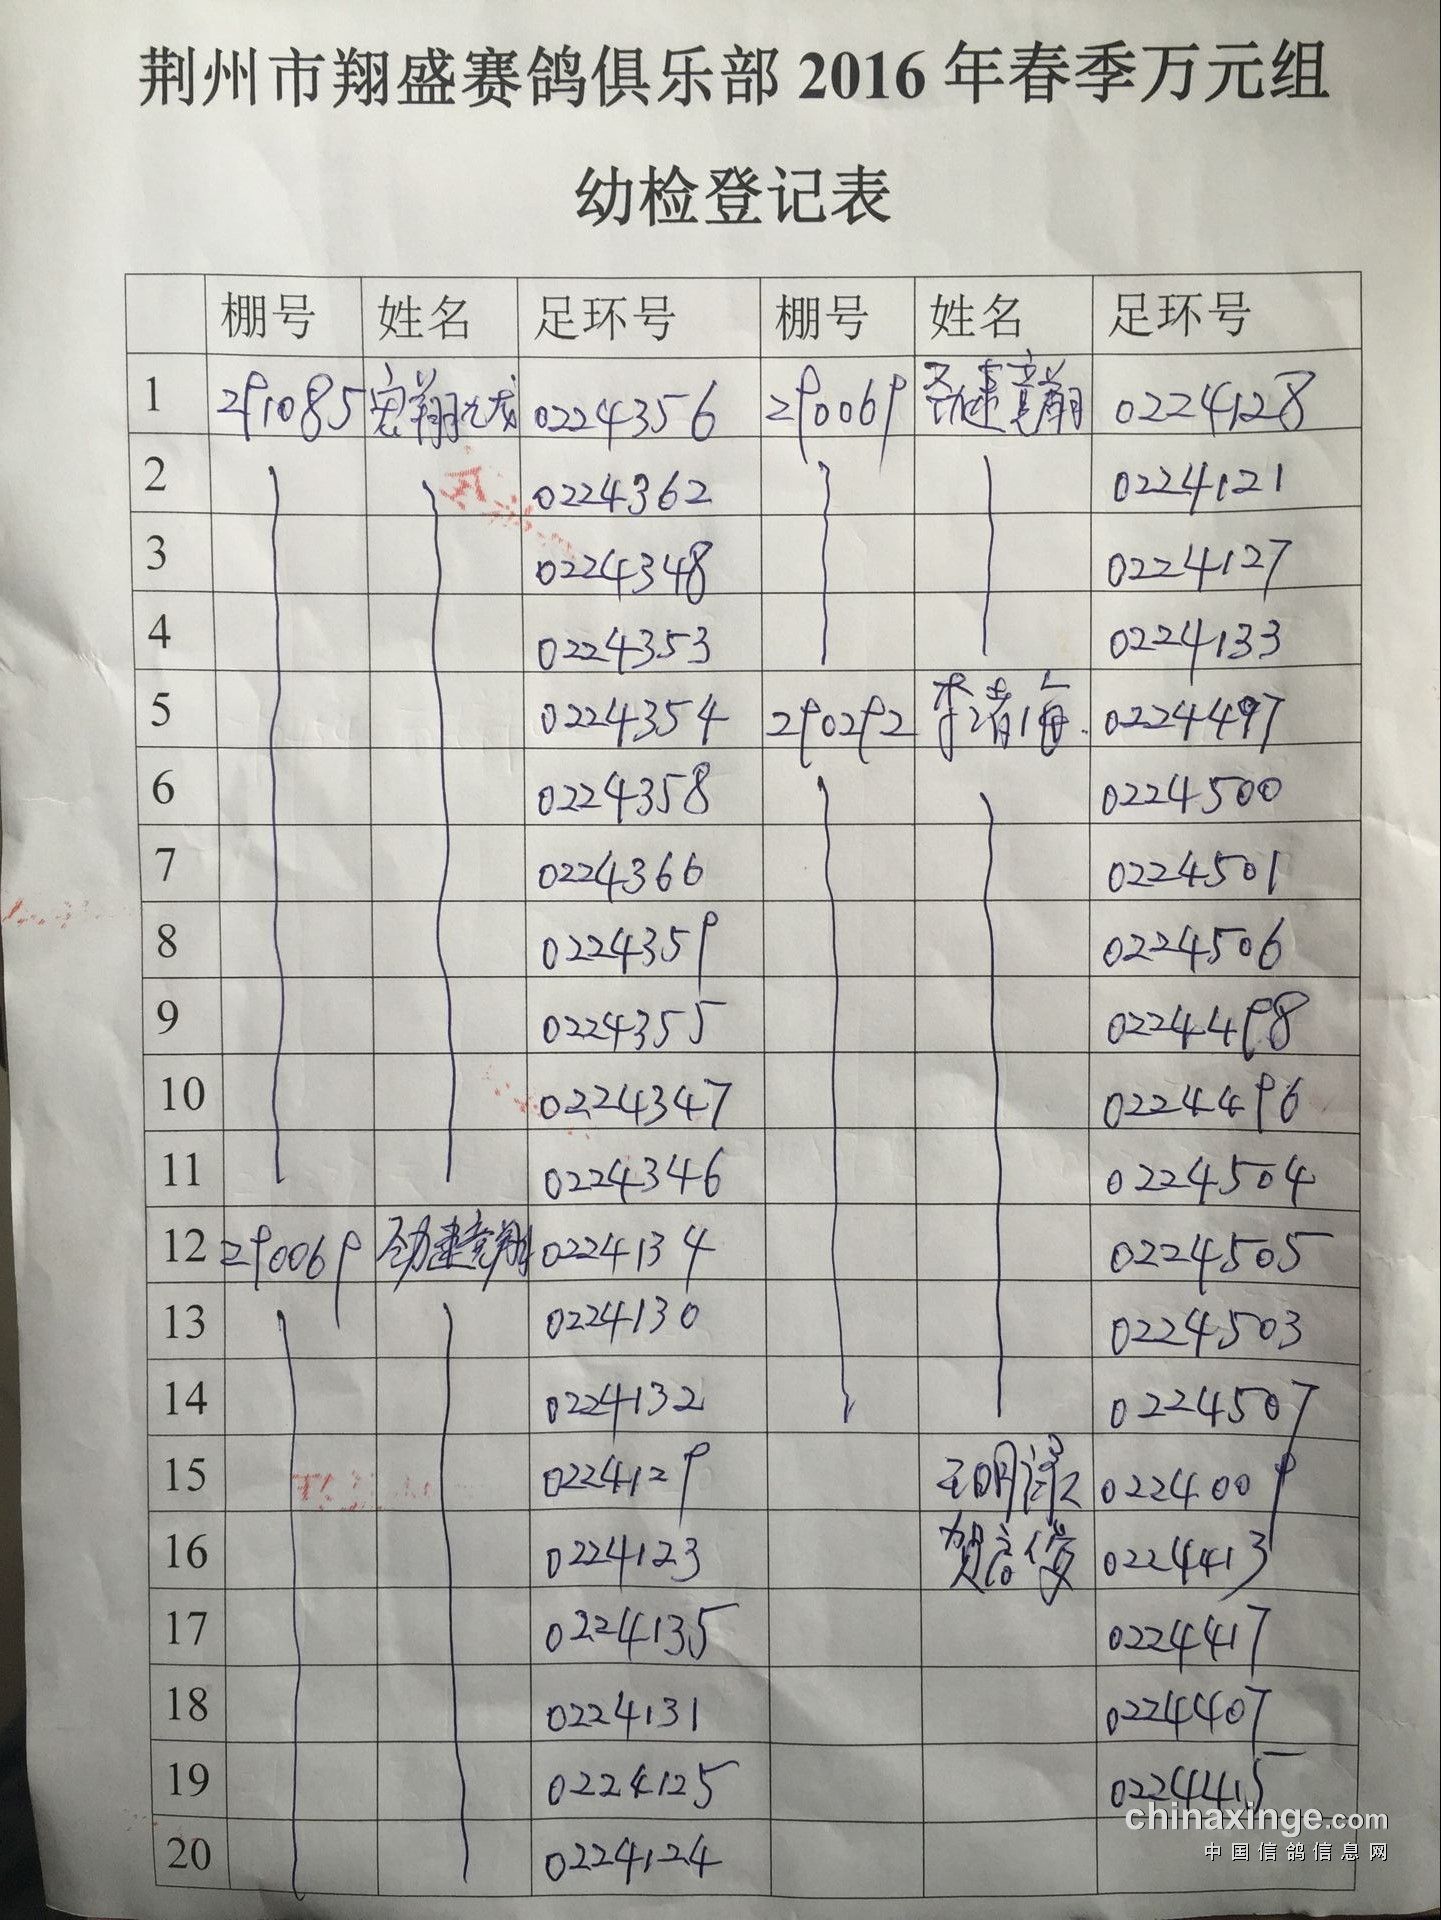 荆州市翔盛赛鸽俱乐部 2016 年春季万元组
幼检登记表
棚号 姓名 足环号 棚号 姓名 足环号
1 291085 宏翔九龙 0224356 290069 劲建竞翔 0224128
2 0224362 0224121
3 0224348 0224127
4 0224353 0224133
5 0224354 290292 李清海 0224497
6 0224358 0224500
7 0224366 0224501
8 0224359 0224506
9 0224355 0224498
10 0224347 0224496
11 0224346 0224504
12 290069 劲建竞翔 0224134 0224505
13 0224130 0224503
14 0224132 0224507
15 0224129 0224009
16 0224123 0224413
17 0224135 0224417
18 0224131 0224407
19 0224125 0224415
20 0224124
chinaxinge.com
中国信鸽信息网